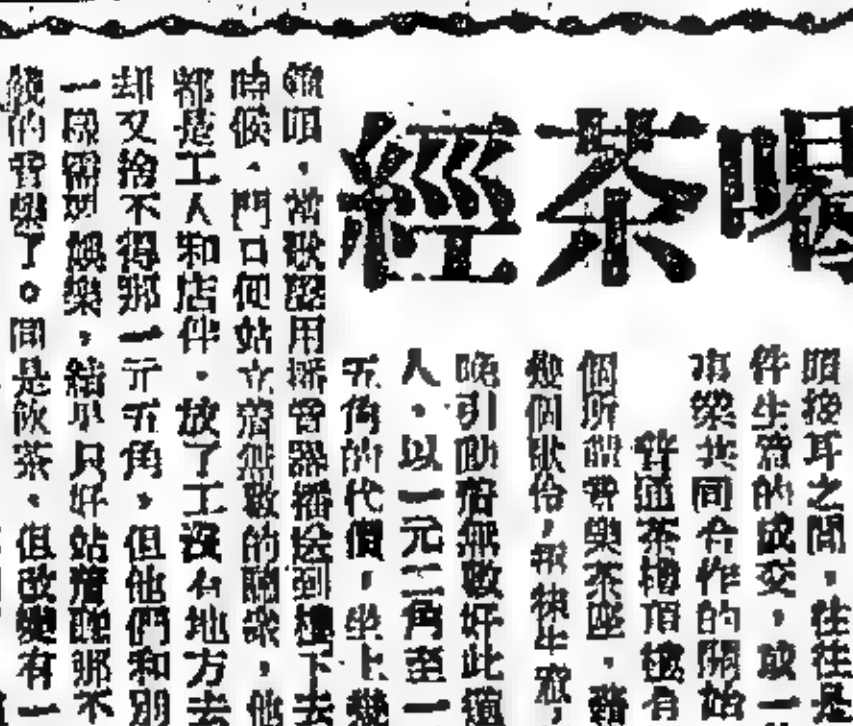 喝茶經
接耳之間，往往是
件生意的成交，或一
共同合作的開始
普通茶樓頂樓有
個所謂音樂茶座，
幾個歌伶，
晚引動着無數好此道
人，以一元二角至一
五角的代價，坐上幾
當歌聲用播音器播送到樓下去
時候，門口便站立着無數的聽眾，他
都是工人和店伴，放了工沒有地方去
却又捨不得那一元五角，但他們和別
一樣需要娛樂，結果只好站着聽那不
錢的音樂了。同是飲茶，但改變有一